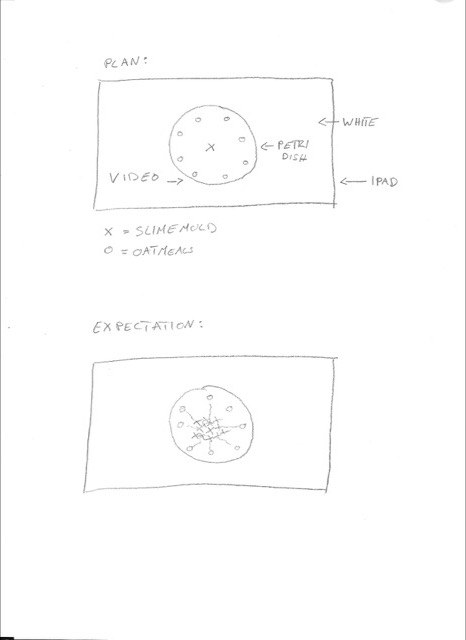 PLAN:
← WHITE
← PETRI
DISH
VIDEO →
← IPAD
X = SLIMEMOLD
O = OATMEALS
EXPECTATION: